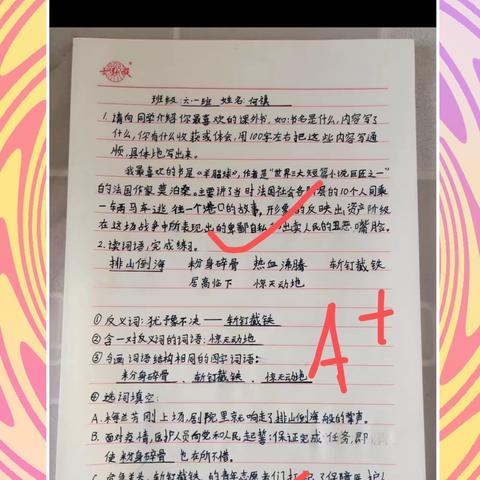 班级:六.一班 姓名:何镇
1.请向同学介绍你最喜欢的课外书,如:书名是什么,内容写了
什么,你有什么收获或体会,用100字左右把这些内容写通
顺、具体地写出来。
我最喜欢的书是《羊脂球》,作者是“世界三大短篇小说巨匠之一”
的法国作家莫泊桑。主要讲了当时法国社会各阶层的10个人同乘
一车两马车逃往一个港口的故事,形象的反映出资产阶级
在这场战争中所表现出的卑鄙自私和出卖人民的丑恶嘴脸。
2.读词语,完成练习。
排山倒海 粉身碎骨 热血沸腾 斩钉截铁
居高临下 惊天动地
①反义词:犹豫不决——斩钉截铁
②含一对反义词的词语:惊天动地
③与画 词语结构相同的四字词语:
粉身碎骨、斩钉截铁、惊天动地
④选词填空:
A.梅兰芳刚上场,剧院里就响起了排山倒海般的掌声。
B.面对疫情,医护人员向党和人民起誓:保证完成任务,即
使粉身碎骨也在所不惜。
斩钉截铁的青年志愿者们
A+